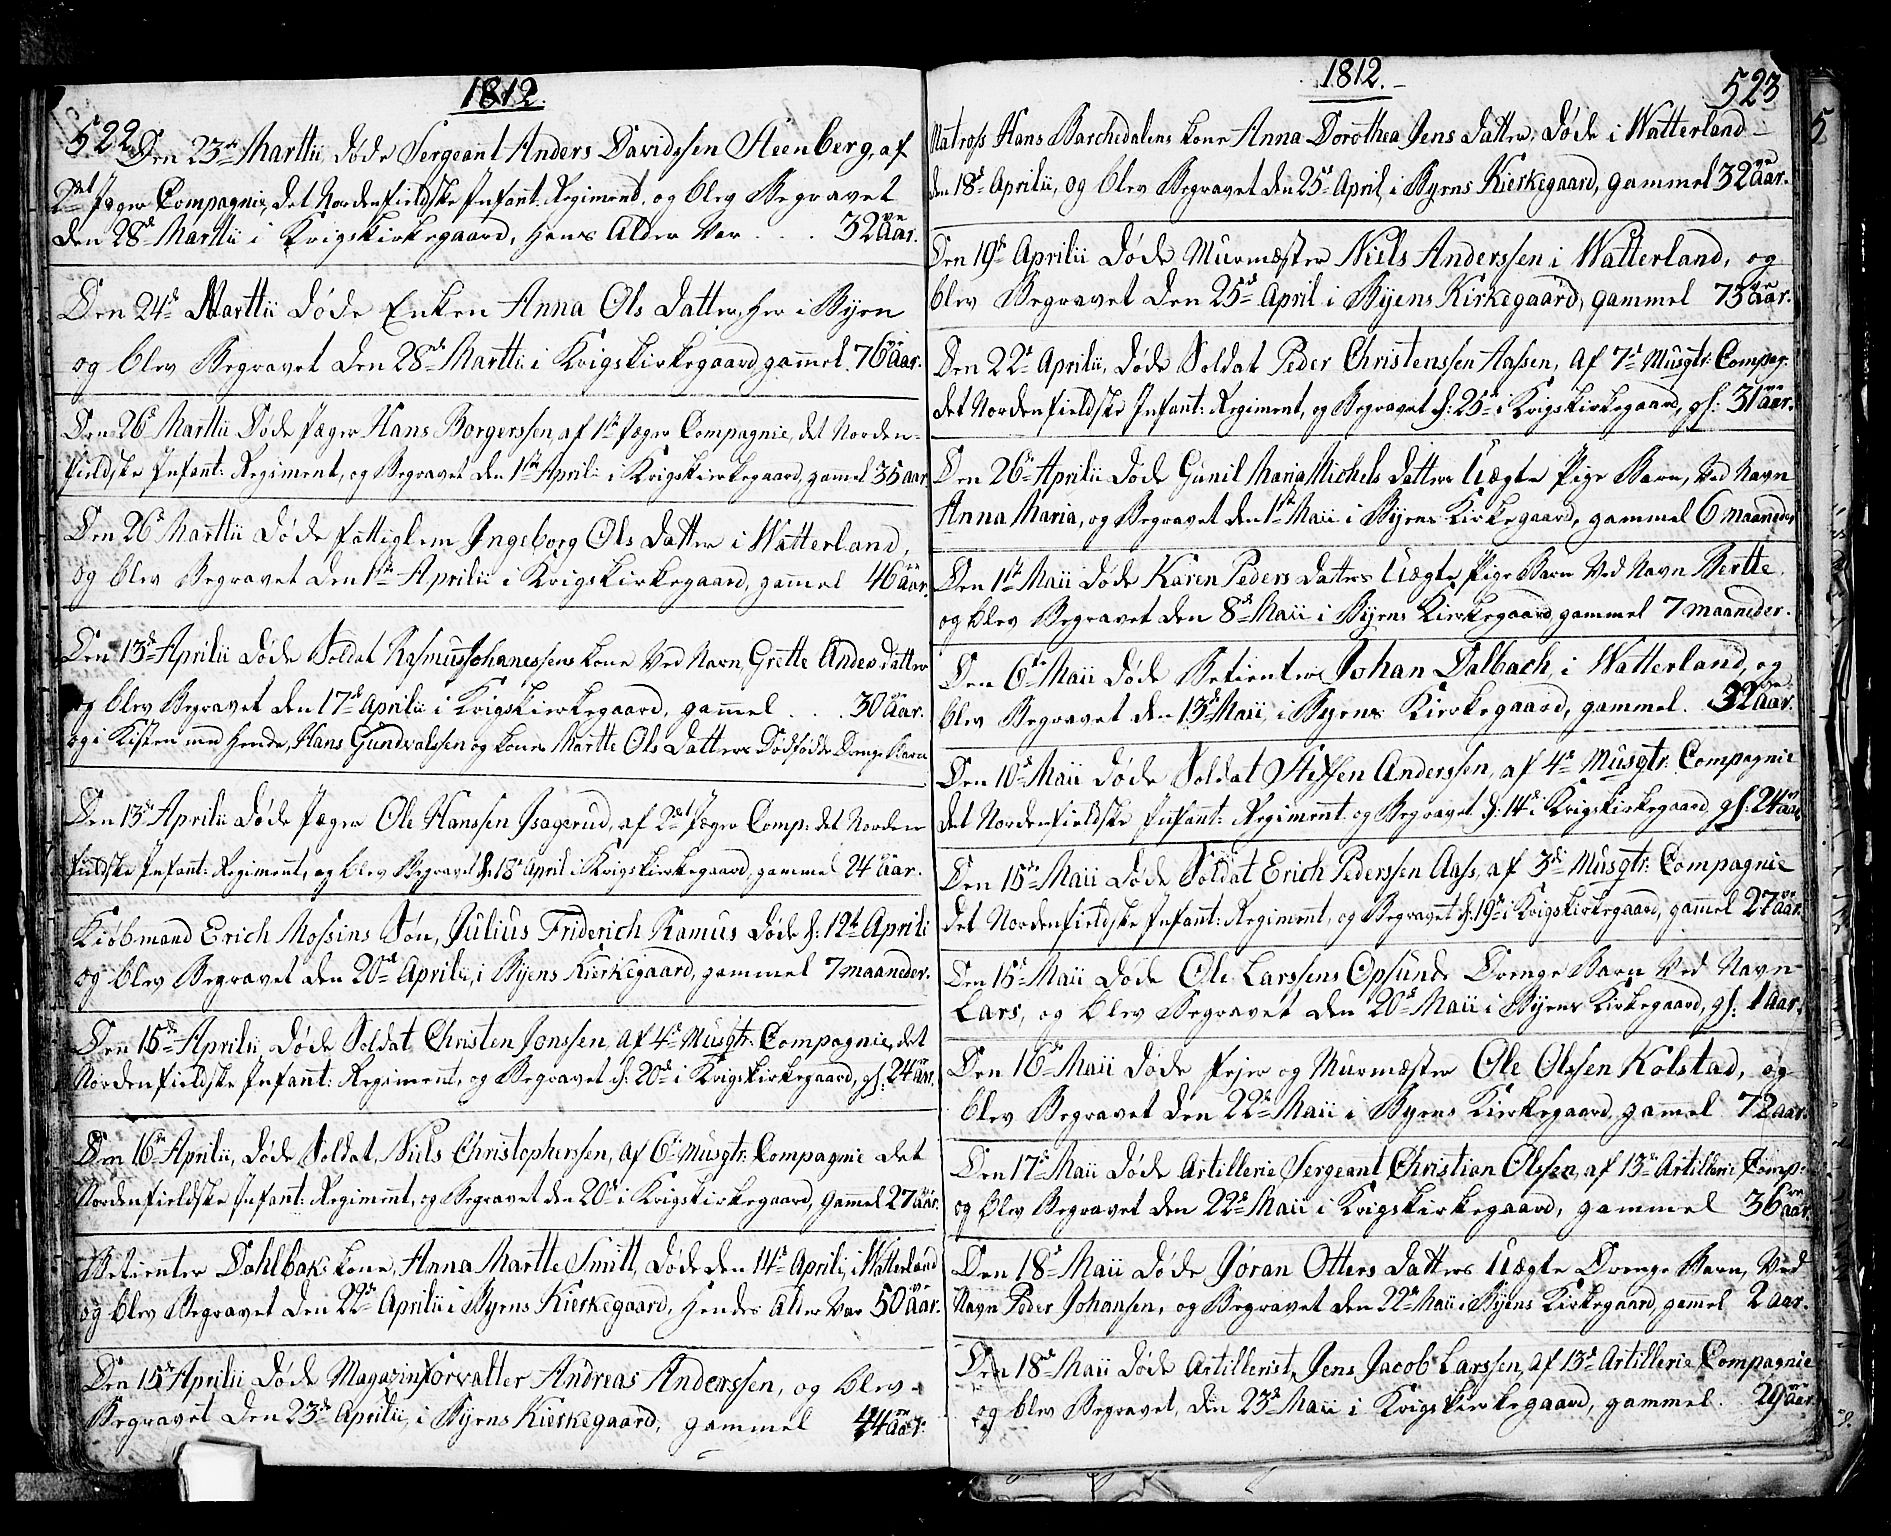 1812.
522.
Den 23de Martii døde Sergeant Anders Davidssen Steenberg, af
2det Jæger Compagnie, det Nordenfieldske Infant: Regiment, og blev Begravet
den 28de Martii i Krigskirkegaard, hans Alder Var . . . 32ve Aar.
Den 24de Martii døde Enken Anna Ols Datter, her i Byen
og blev Begravet den 28de Martii i Krigskirkegaard, gammel 76 Aar.
Den 26de Martii Døde Jæger Hans Borgerssen, af 1ste Jæger Compagnie, det Norden-
fieldske Infant: Regiment, og Begravet den 1ste Aprili i Krigskirkegaard, gammel 35 aar
Den 26de Martii døde fattiglem Ingeborg Ols Datter i Watterland,
og blev Begravet den 1ste Aprilii i Krigskirkegaard, gammel 46 Aar.
Den 13de Aprilii døde Soldat Rasmus Johanessens kone Ved Navn, Grette Anders datter
og blev Begravet den 17de Aprilii i Krigskierkegaard, gammel . . . 30 Aar.
og i Kisten med hende, Hans Gundvalssen og kones Martte Ols Datters Dødfødte Drenge Barn
Den 13de Aprilii døde Jæger Ole Hanssen Isagerud, af 2det Jæger Comp: det Norden
fieldske Infant: Regiment, og blev Begravet d: 18de April i Krigskirkegaard, gammel 24 Aar.
Kiøbmand Erich Mossins Søn, Julius Friderich Ramus døde d: 12te Aprili
og blev Begravet den 20de Aprilii, i Byens Kierkegaard, gammel 7 maaneder.
Den 15de Aprilii, døde Soldat Christen Jonssen, af 4de Musqtr: Compagnie, det
Nordenfieldske Infant: Regiment, og Begravet d: 20de i Krigskirkegaard, gl: 24 Aar.
Den 16de Aprilii, døde Soldat, Niels Christophersen, af 6te Musqtr: Compagnie det
Nordenfieldske Infant: Regiment, og Begravet den 20de i Krigskirkegaard, gammel 27 Aar.
Betienter Dahlbaks kone, Anna Martte Smitt, døde den 14de Aprili, i Watterland
og blev Begravet den 22de Aprilii i Byens Kierkegaard, hendes Alder Var 50 Aar.
Den 15de Aprilii døde Magazinforvalter Andreas Anderssen, og blev
Begravet den 23de Aprilii, i Byens Kierkegaard, gammel 44 Aar.
1812.
523
Matross Hans Barchedalens kone Anna Dorothea Jens datter, døde i Watterland
den 18de Aprilii, og blev Begravet den 25de April, i Byens Kierkegaard, gammel 32 Aar.
Den 19de Aprilii døde Murmæster Niels Anderssen i Watterland, og
blev Begravet den 25de April i Byens Kirkegaard, gammel 73 Aar.
Den 22de Aprilii, døde Soldat Peder Christenssen Aassen, af 7de Musqtr: Compag:
det Nordenfieldske Infant: Regiment, og Begravet d: 25de i Krigskirkegaard, gl: 31 Aar.
Den 26de Aprilii døde Gunil Maria Michels datters Uægte Pige Barn, Ved Navn
Anna Maria, og Begravet den 1ste Maii i Byens Kirkegaard, gammel 6 maaneder
Den 1ste Maii døde Karen Peders datters Uægte Pige Barn Ved Navn Bertte,
og blev Begravet den 8de Maii i Byens Kirkegaard, gammel 7 maaneder.
Den 6te Maii døde Betienter Johan Dalbach, i Watterland, og
blev Begravet den 13de Maii, i Byens Kierkegaard, gammel . 32 Aar.
Den 10de Maii døde Soldat Steffen Anderssen, af 4de Musqtr: Compagnie
det Nordenfieldske Infant: Regiment og Begravet d: 14de i Krigskirkegaard, gl: 24 Aar
Den 15de Maii døde Soldat Erich Pederssen Aass, af 3de Musqtr: Compagnie
det Nordenfieldske Infant: Regiment, og Begravet d: 19de i Krigskirkegaard, gammel 27 Aar.
Den 15de Maii døde Ole Larssens Opsunde Drenge Barn Ved Navn
Lars, og blev Begravet den 20de Maii i Byens Kirkegaard, gl: 1 Aar.
Den 16de Maii døde Fejer og Murmæster Ole Olssen Kolstad, og
blev Begravet den 22de Maii i Byens Kierkegaard, gammel 72 aar.
Den 17de Maii døde Artillerie Sergeant Christian Olssen, af 13de Artillerie Comp:
og blev Begravet den 22de Maii i Krigskirkegaard, gammel 36 Aar.
Den 18de Maii døde Jøran Otters datters Uægte Drenge Barn, Ved
Navn Peder Johansen, og Begravet den 22de Maii i Byens Kirkegaard, gammel 2 aar.
Den 18de Maii døde Artillerist, Jens Jacob Larssen, af 13de Artillerie Compagnie
og blev Begravet, den 23de Maii i Krigskirkegaard, gammel . 29 Aar.